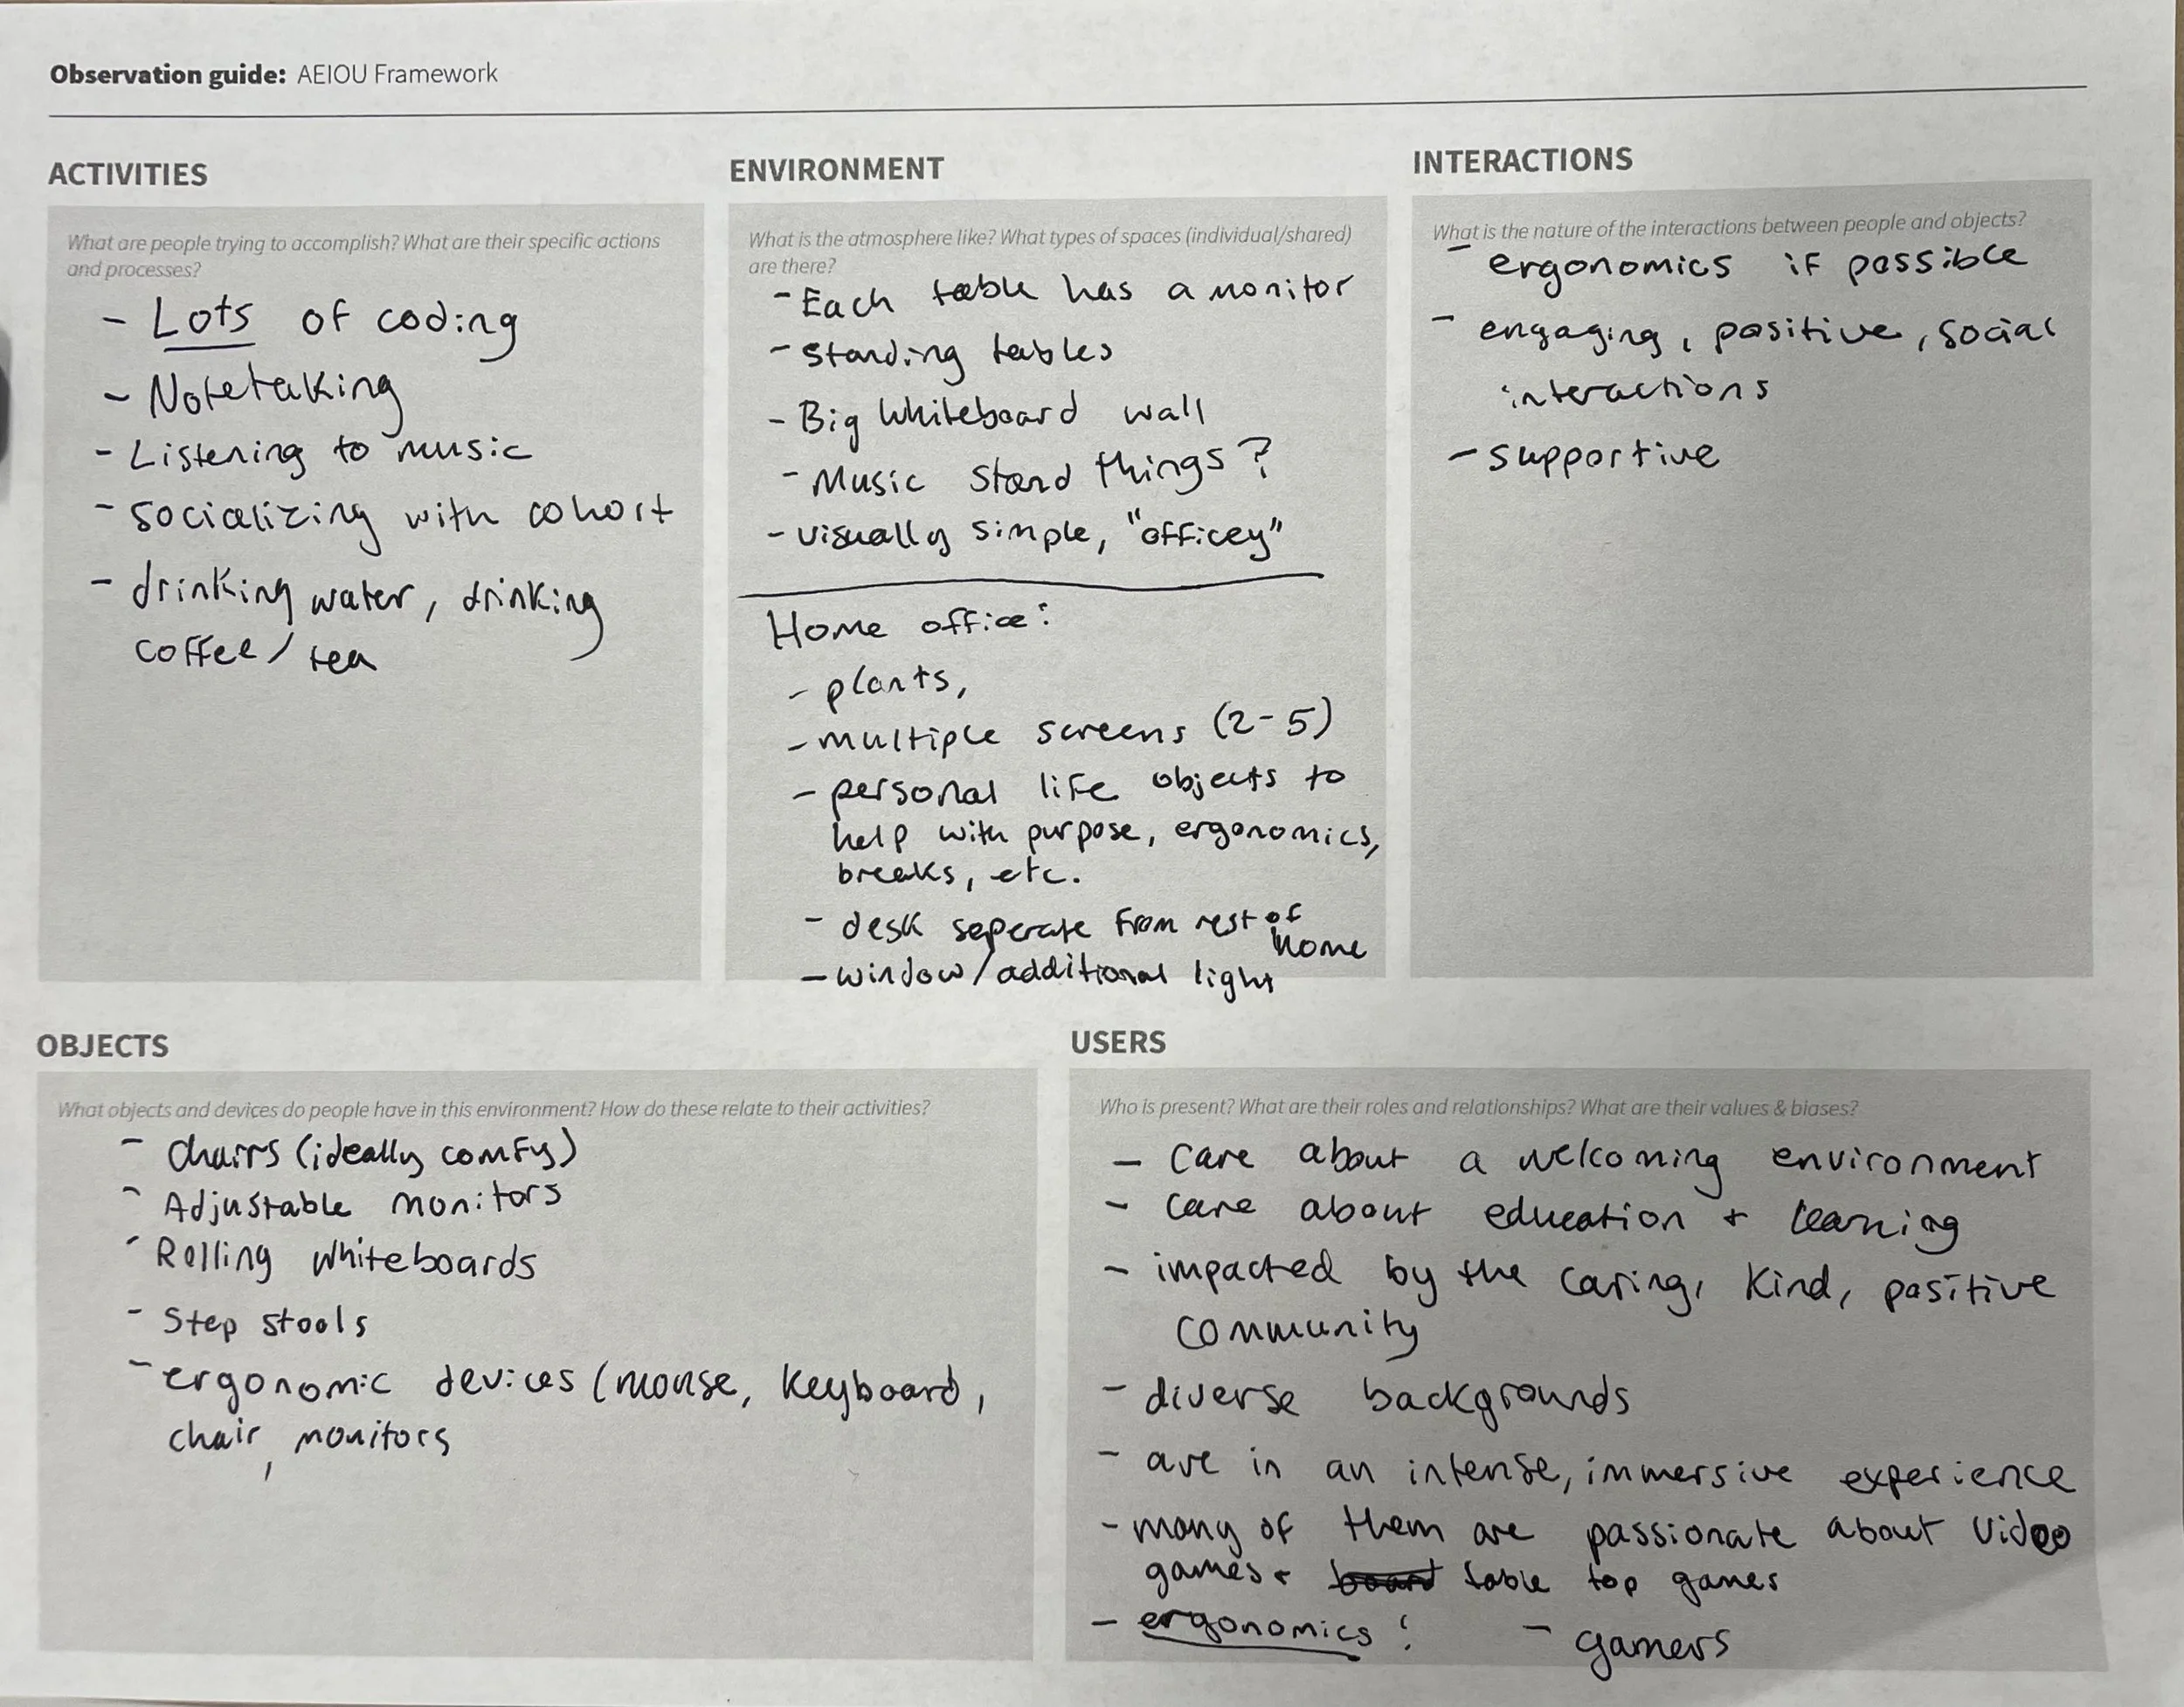 Observation guide: AEIOU Framework
ACTIVITIES
What are people trying to accomplish? What are their specific actions
and processes?
- Lots of coding
- Notetaking
- Listening to music
- socializing with cohort
- drinking water, drinking
coffee/tea
ENVIRONMENT
What is the atmosphere like? What types of spaces (individual/shared)
are there?
- Each table has a monitor
- standing tables
- Big whiteboard wall
- Music stand things?
- visually simple, "officey"
Home office:
- plants,
- multiple screens (2-5)
- personal life objects to
help with purpose, ergonomics,
breaks, etc.
- desk seperate from rest of
home
- window/additional light
INTERACTIONS
What is the nature of the interactions between people and objects?
- ergonomics if possible
- engaging, positive, social
interactions
- supportive
OBJECTS
What objects and devices do people have in this environment? How do these relate to their activities?
- chairs (ideally comfy)
- Adjustable monitors
- Rolling whiteboards
- Step stools
- ergonomic devices (mouse, keyboard,
chair, monitors
USERS
Who is present? What are their roles and relationships? What are their values & biases?
- care about a welcoming environment
- care about education + learning
- impacted by the caring, kind, positive
community
- diverse backgrounds
- are in an intense, immersive experience
- many of them are passionate about video
games + board table top games
- ergonomics! - gamers